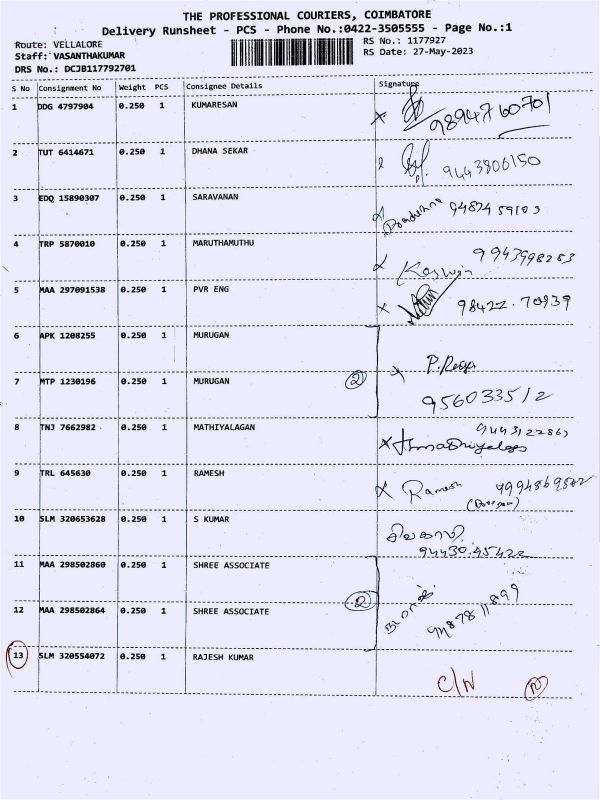 THE PROFESSIONAL COURIERS, COIMBATORE
Delivery Runsheet - PCS - Phone No.:0422-3505555 - Page No.:1
Route: VELLALORE
RS No.: 1177927
Staff: VASANTHAKUMAR
RS Date: 27-May-2023
DRS No.: DCJB117792701
S No Consignment No Weight PCS Consignee Details Signature
1 DDG 4797904 0.250 1 KUMARESAN 9894760701
2 TUT 6414671 0.250 1 DHANA SEKAR 9443806150
3 EDQ 15890307 0.250 1 SARAVANAN
4 TRP 5870010 0.250 1 MARUTHAMUTHU 9943998283
5 MAA 297091538 0.250 1 PVR ENG 98422.70939
6 APK 1208255 0.250 1 MURUGAN
7 MTP 1230196 0.250 1 MURUGAN 2 956033512
8 TNJ 7662982 0.250 1 MATHIYALAGAN
9 TRL 645630 0.250 1 RAMESH Ramesh
10 SLM 320653628 0.250 1 S KUMAR 94430.45422
11 MAA 298502860 0.250 1 SHREE ASSOCIATE
12 MAA 298502864 0.250 1 SHREE ASSOCIATE 2
13 SLM 320554072 0.250 1 RAJESH KUMAR C/N